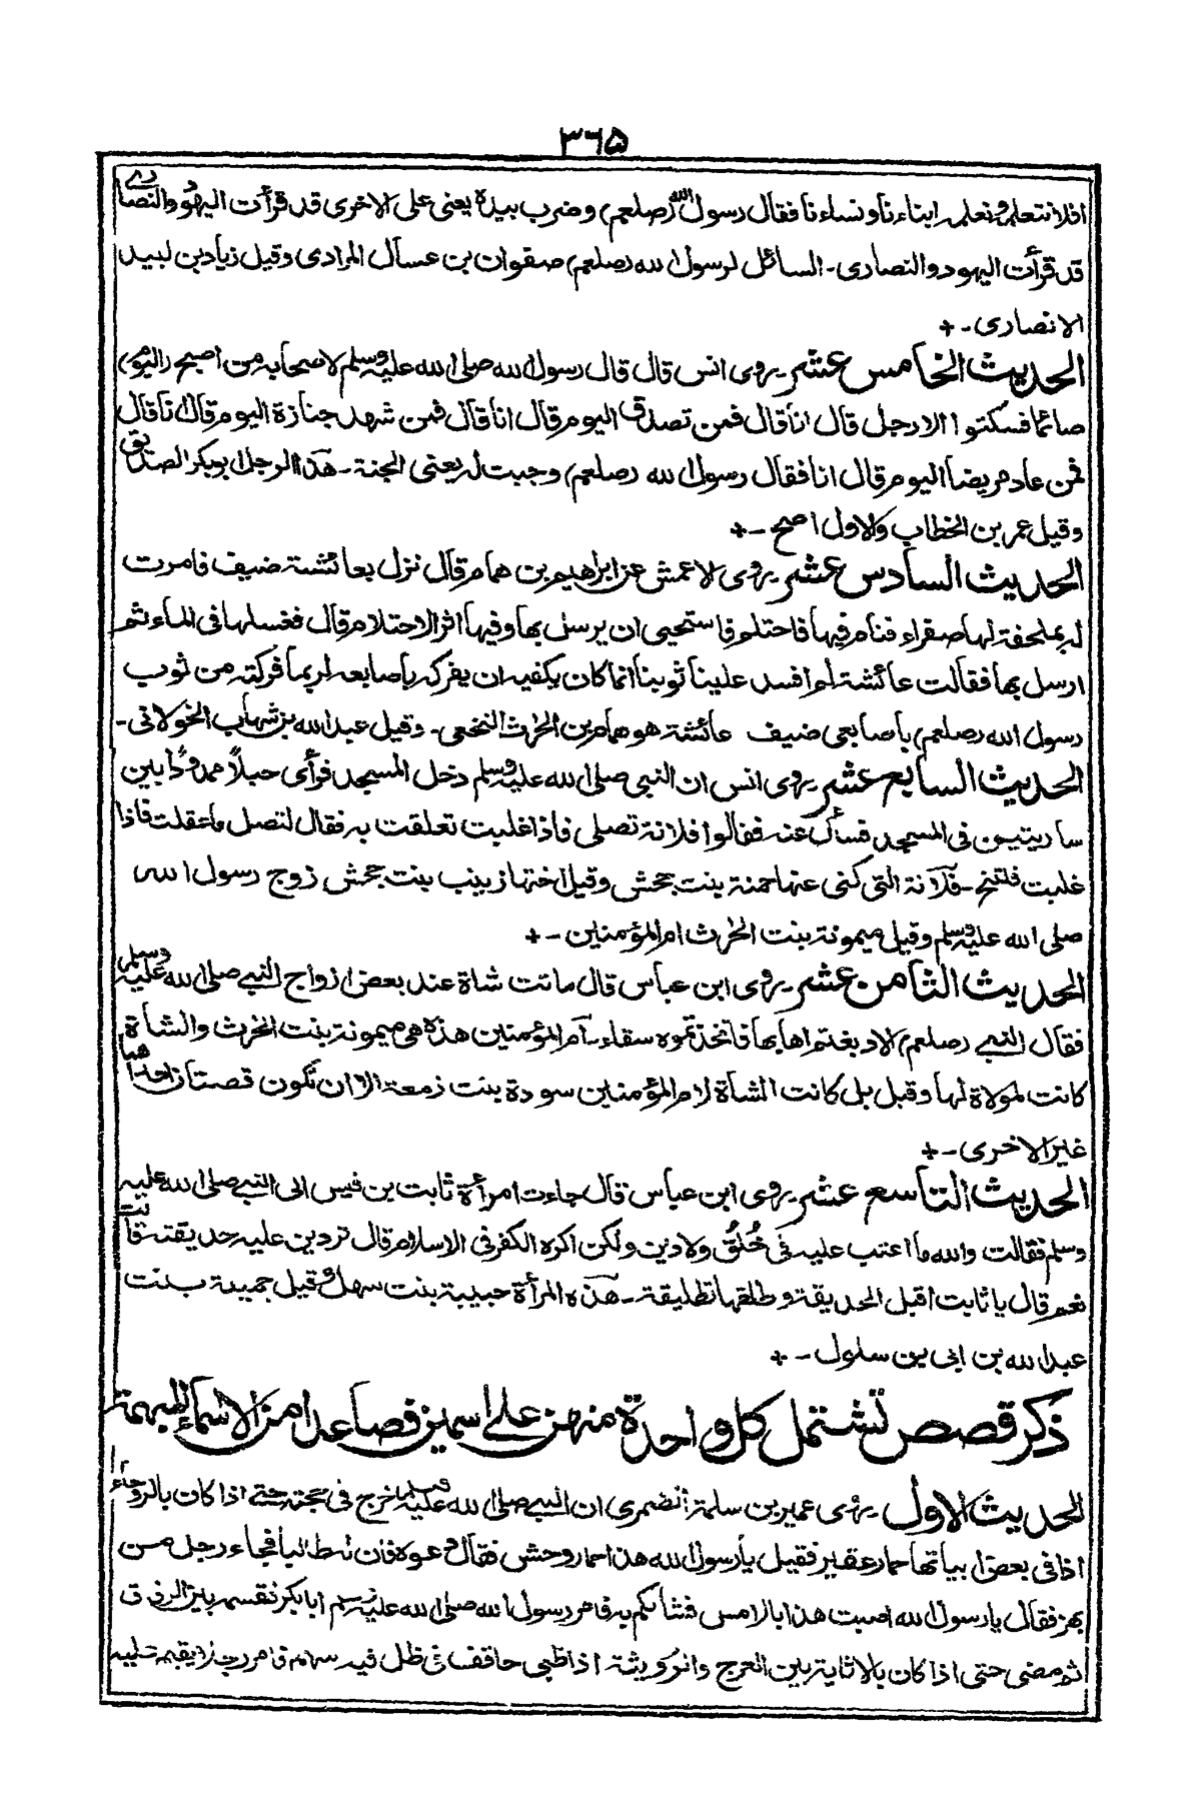 ٣٦٥
افلا نتعلم ونعلم ابناءنا ونساءنا فقال رسول الله (صلعم) وضرب بيده يعنى على الاخرى قد قرأت اليهود والنصارى
قد قرأت اليهود والنصارى ـ السائل لرسول الله (صلعم) صفوان بن عسال المرادى وقيل زياد بن لبيد
الانصارى ـ +
الحديث الخامس عشر يروى انس قال قال رسول الله صلى الله عليه وسلم لاصحابه من اصبح (اليوم)
صائما فسكتوا الا رجل قال انا قال فمن تصدق اليوم قال انا قال فمن شهد جنازة اليوم قال انا قال
فمن عاد مريضا اليوم قال انا فقال رسول الله (صلعم) وجبت له يعنى الجنة ـ هذا الرجل ابوبكر الصديق
وقيل عمر بن الخطاب والاول اصح ـ +
الحديث السادس عشر يروى لاعمش عن ابراهيم بن همام قال نزل بعائشة ضيف فامرت
له بملحفة لها صفراء فنام فيها فاحتلم فاستحيى ان يرسل بها وفيها اثر الاحتلام قال فغسلها فى الماء ثم
ارسل بها فقالت عائشة لم افسد علينا ثوبنا انما كان يكفيه ان يفركه باصابعه لربما فركته من ثوب
رسول الله (صلعم) باصابعى ضيف عائشة هو همام بن الحرث النخعى ـ وقيل عبدالله بن شهاب الخولانى ـ
الحديث السابع عشر يروى انس ان النبى صلى الله عليه وسلم دخل المسجد فرأى حبلاً ممدودًا بين
ساريتين فى المسجد فسأل عنه فقالوا فلانة تصلى فاذا غلبت تعلقت به فقال لتصل ما عقلت فاذا
غلبت فلتنم ـ فلانة التى كنى عنها حمنة بنت جحش وقيل اختها زينب بنت جحش زوج رسول الله
صلى الله عليه وسلم وقيل ميمونة بنت الحرث ام المؤمنين ـ +
الحديث الثامن عشر يروى ابن عباس قال ماتت شاة عند بعض ازواج النبى صلى الله عليه وسلم
فقال النبى (صلعم) الا دبغتم اهابها فاتخذتموه سقاء ـ ام المؤمنين هذه هى ميمونة بنت الحرث والشاة
كانت لمولاة لها وقيل بل كانت الشاة لام المؤمنين سودة بنت زمعة الا ان تكون قصتان احداهما
غير الاخرى ـ +
الحديث التاسع عشر يروى ابن عباس قال جاءت امرأة ثابت بن قيس الى النبى صلى الله عليه
وسلم فقالت والله ما اعتب عليه فى خُلُق ولا دين ولكن اكره الكفر فى الاسلام قال تردين عليه حديقته قالت
نعم قال يا ثابت اقبل الحديقة وطلقها تطليقة ـ هذه المرأة حبيبة بنت سهل وقيل جميلة بنت
عبدالله بن ابى بن سلول ـ +
ذكر قصص تشتمل كل واحدة منهن على اسمين فصاعدا من الاسماء المبهمة
الحديث الاول يروى عمير بن سلمة الضمرى ان النبى صلى الله عليه وسلم خرج فى حجته حتى اذا كان بالروحاء
اذا فى بعض ابياتها حمار عقير فقيل يا رسول الله هذا حمار وحش فقال دعوه فان له طالبا فجاء رجل من
بهز فقال يا رسول الله اصبت هذا بالامس فشانكم به فامر رسول الله صلى الله عليه وسلم ابابكر فقسمه بين الرفاق
ثم مضى حتى اذا كان بالاثاية بين العرج والرويثة اذا ظبى حاقف فى ظل فيه سهام فامر رجلا يقيم عليه